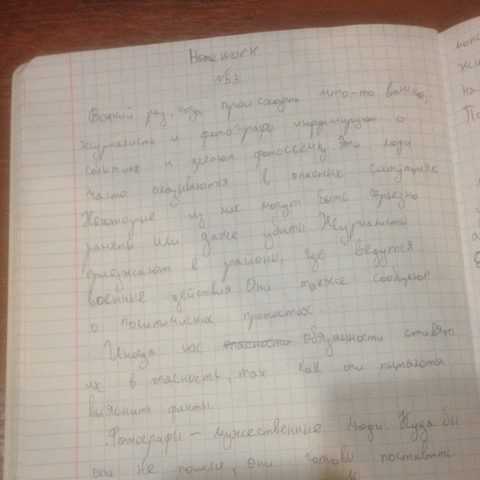 Homework
№53
Всякий раз, когда происходит что-то важно,
журналисты и фотографы информируют о
событиях и делают фотосессию. Эти люди
часто оказываются в опасных ситуациях
Некоторые из них могут быть серьезно
ранены или даже убиты. Журналисты
приезжают в районы, где ведутся
военные действия. Они также сообщают
о политических протестах.
Иногда их обязанности ставят
их в опасность, так как они пытаются
выяснить факты.
Фотографы – мужественные люди. Куда бы
они не пошли, они готовы поставить